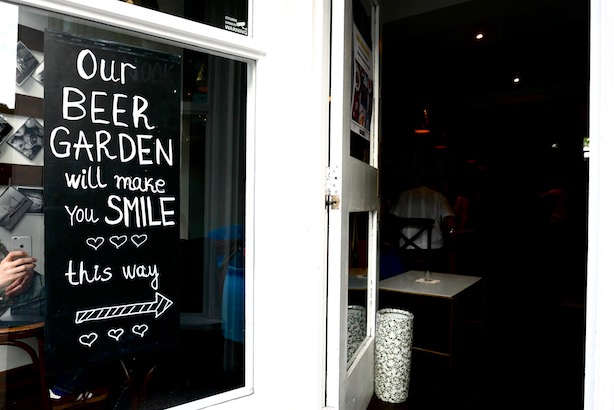 Our
BEER
GARDEN
will make
you SMILE
this way